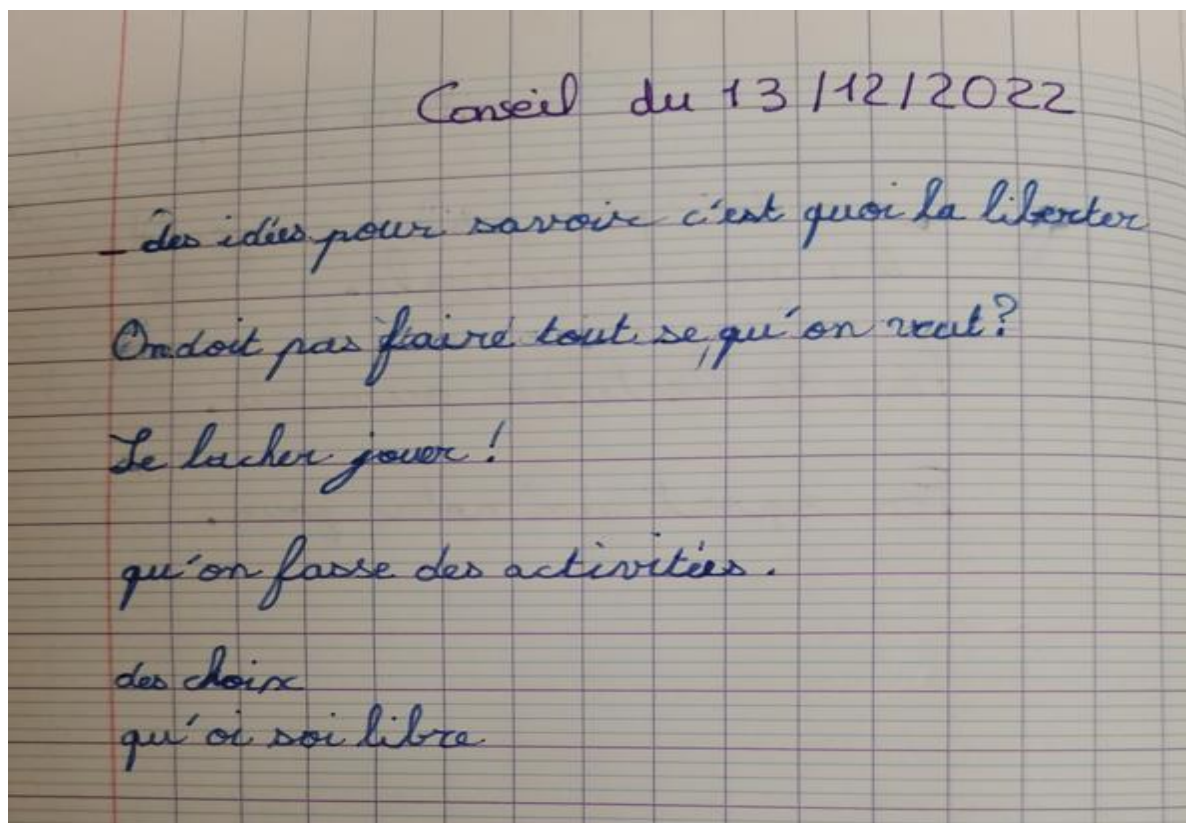 Conseil du 13/12/2022
- des idées pour savoir c'est quoi la liberter
On doit pas faire tout se qu'on veut?
Se lacher jouer !
qu'on fasse des activitées.
des choix
qu'oi soi libre